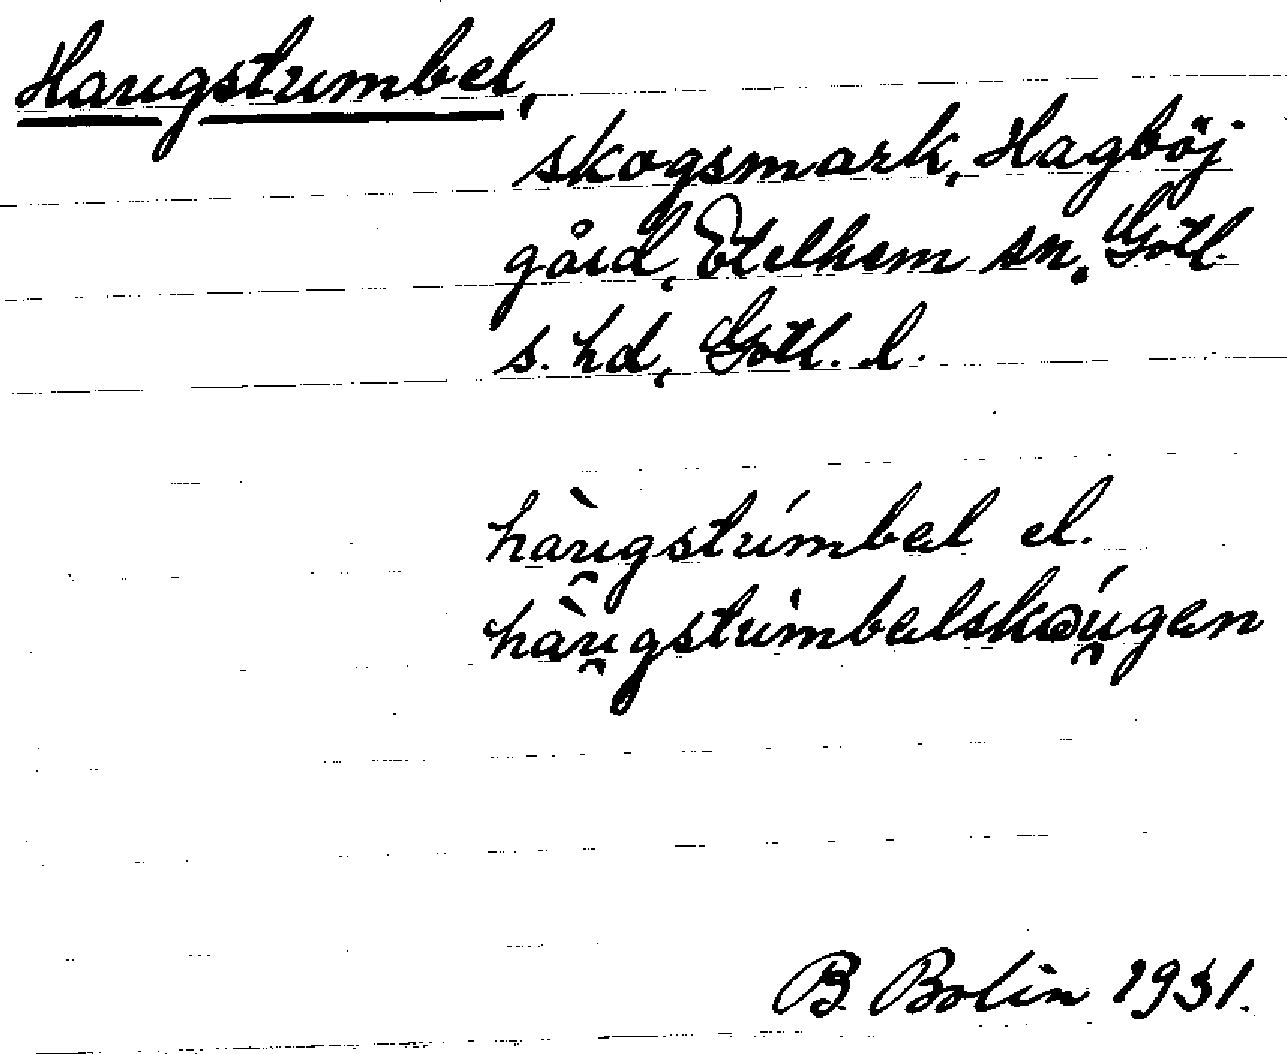 Haugstumbel,
skogsmark, Hagböj
gård, Etelhem sn. Gotl.
s. hd, Gotl. l.
hàu̯gstúmbəl el.
hàu̯gstúmbəlskəú̯gən
B. Bolin 1931.